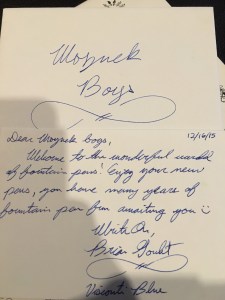 Woznek
Boys
12/16/15
Dear Woznek boys,
Welcome to the wonderful world
of fountain pens! Enjoy your new
pens, you have many years of
fountain pen fun awaiting you :)
Write On,
Brian Goulet
Visconti Blue